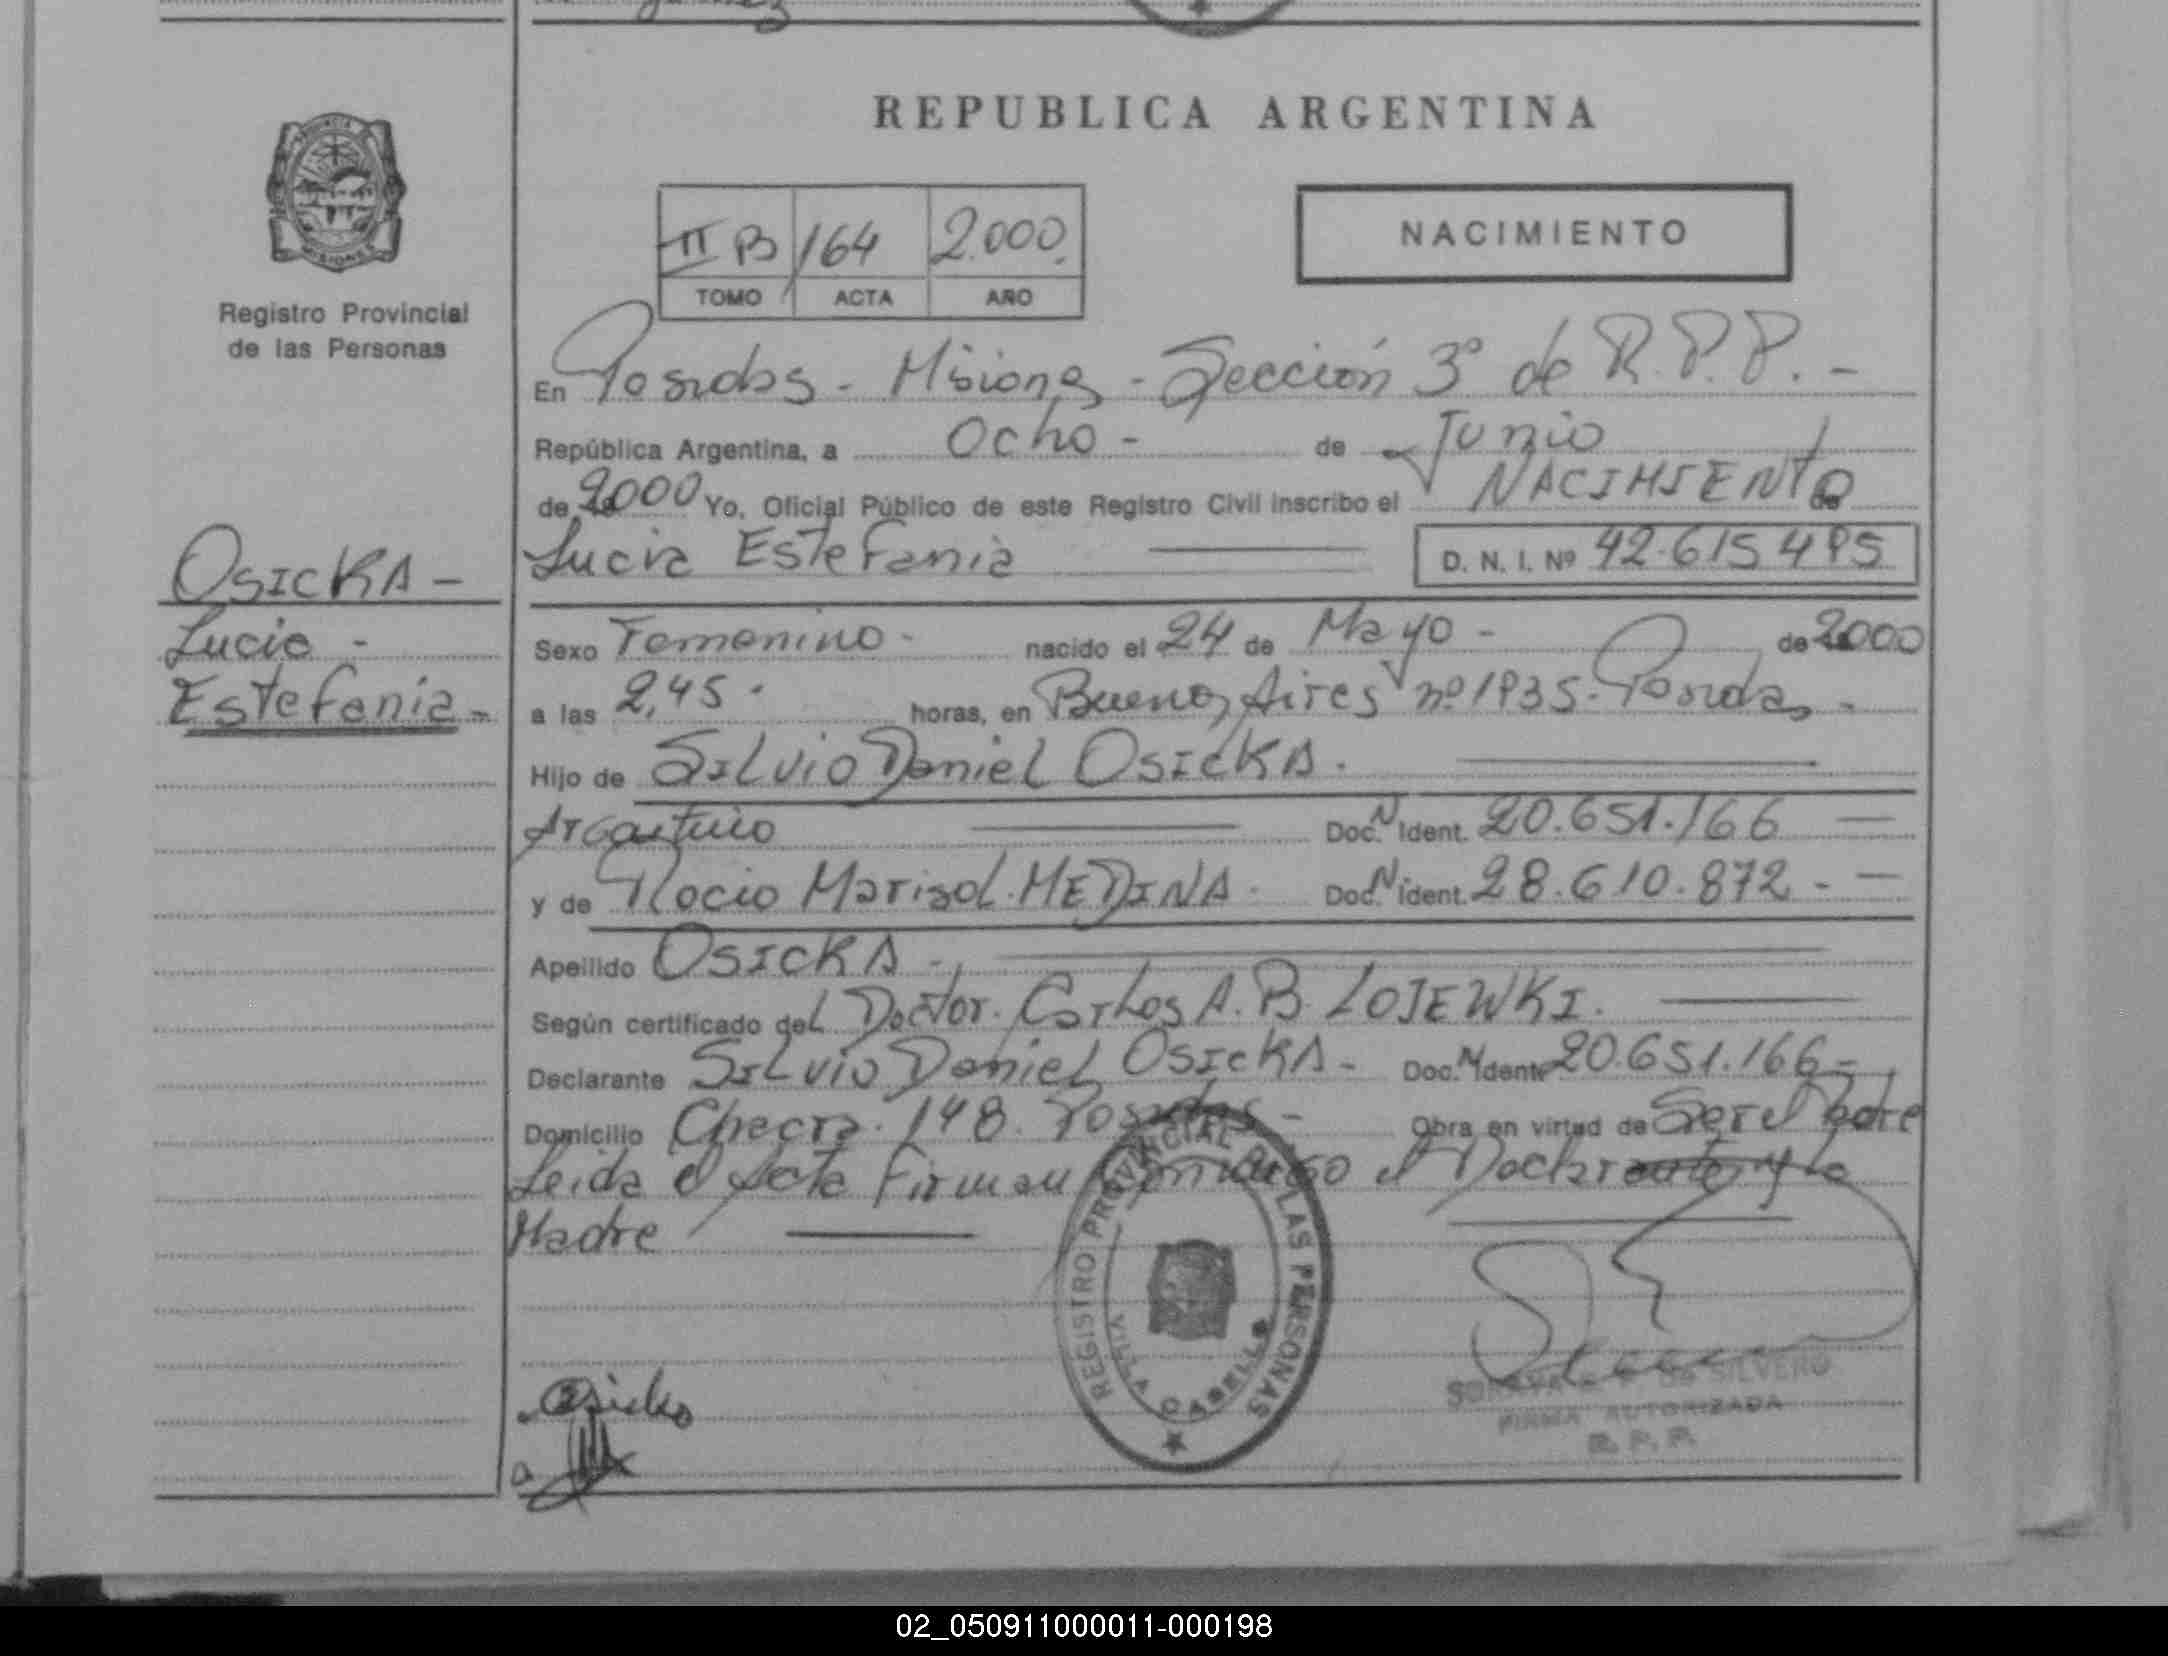 REPUBLICA ARGENTINA
PROVINCIA
MISIONES
Registro Provincial
de las Personas
II B 164 2.000.
TOMO ACTA AÑO
NACIMIENTO
En Posadas - Misiones - Sección 3º de R.P.P. -
República Argentina, a Ocho - de Junio
de 2000 Yo, Oficial Público de este Registro Civil inscribo el NACIMIENTO de
Lucia Estefania D. N. I. Nº 42.615 495
OSICKA -
Lucia -
Estefania -
Sexo Femenino - nacido el 24 de Mayo - de 2000
a las 2,45 . horas, en Buenos Aires nº 1935 - Posadas -
Hijo de SILvio Daniel OSICKA.
Argentino Doc. N Ident. 20.651.166
y de Rocio Marisol MEDINA - Doc. N Ident. 28.610.872 -
Apellido OSICKA -
Según certificado del Doctor. Carlos A. B. LOJEWKI.
Declarante SILvio Daniel OSICKA - Doc. N Ident. 20.651.166 -
Domicilio Chacra. 148. Posadas - Obra en virtud de Ser el Padre
Leida el Acta Firman Conmigo el Declarante y la
Madre
REGISTRO PROVINCIAL DE LAS PERSONAS
VILLA CABELLO
Osicka
DA SILVERO
FIRMA AUTORIZADA
R. P. P.
02_050911000011-000198